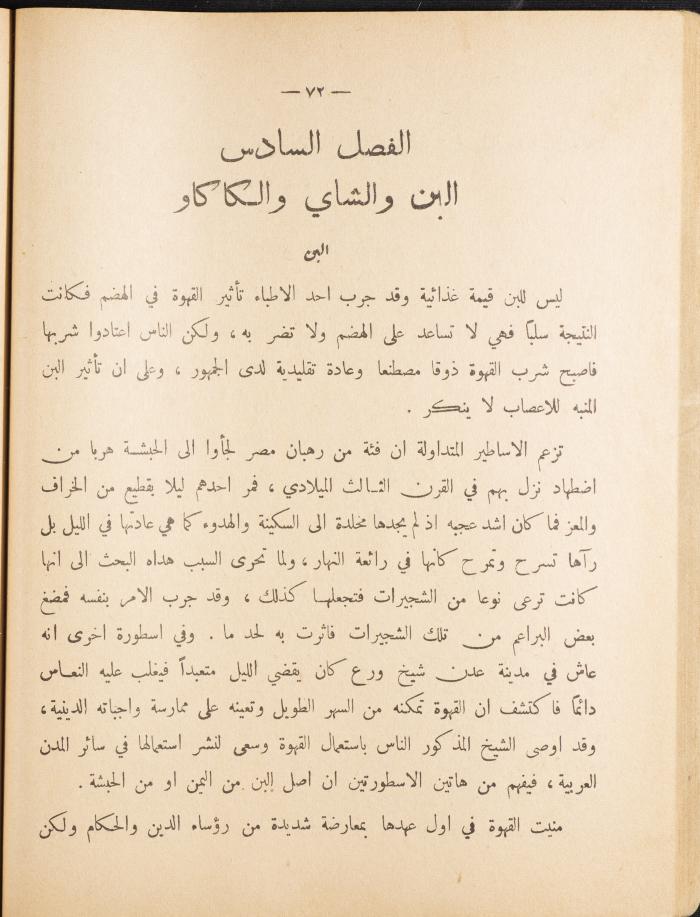 — ٧٢ —
الفصل السادس
البن والشاي والكاكاو
البن
ليس للبن قيمة غذائية وقد جرب احد الاطباء تأثير القهوة في الهضم فكانت
النتيجة سلباً فهي لا تساعد على الهضم ولا تضر به ، ولكن الناس اعتادوا شربها
فاصبح شرب القهوة ذوقا مصطنعا وعادة تقليدية لدى الجمهور ، وعلى ان تأثير البن
المنبه للاعصاب لا ينكر .
تزعم الاساطير المتداولة ان فئة من رهبان مصر لجأوا الى الحبشة هربا من
اضطهاد نزل بهم في القرن الثالث الميلادي ، فمر احدهم ليلا بقطيع من الخراف
والمعز فما كان اشد عجبه اذ لم يجدها مخلدة الى السكينة والهدوء كما هي عادتها في الليل بل
رآها تسرح وتمرح كانها في رائعة النهار ، ولما تحرى السبب هداه البحث الى انها
كانت ترعى نوعا من الشجيرات فتجعلها كذلك ، وقد جرب الامر بنفسه فمضغ
بعض البراعم من تلك الشجيرات فاثرت به لحد ما . وفي اسطورة اخرى انه
عاش في مدينة عدن شيخ ورع كان يقضي الليل متعبداً فيغلب عليه النعاس
دائماً فاكتشف ان القهوة تمكنه من السهر الطويل وتعينه على ممارسة واجباته الدينية ،
وقد اوصى الشيخ المذكور الناس باستعمال القهوة وسعى لنشر استعمالها في سائر المدن
العربية ، فيفهم من هاتين الاسطورتين ان اصل البن من اليمن او من الحبشة .
منيت القهوة في اول عهدها بمعارضة شديدة من رؤساء الدين والحكام ولكن